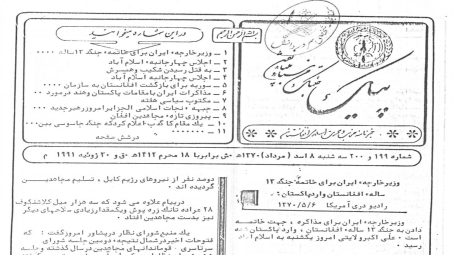 در این شماره میخوانید
۱ – وزیرخارجهٔ ایران برای خاتمهٔ جنگ ۱۳ ساله ....
۲ – اجلاس چهارجانبهٔ اسلام آباد
۳ – به قتل رسیدن شکیب وهمسرش
۴ – اجلاس چهارجانبهٔ اسلام آباد
۵ – سوریه برای بازگشت افغانستان به سازمان ....
۶ – مذاکرات ایران بامقامات پاکستان وهند درمورد ..
۷ – مکتوب سیاسی هفته
۸ – جبههٔ نجات اسلامی الجزایر امروز رهبر جدید ....
۹ – پیروزی تازهٔ مجاهدین افغان
۱۰ – یک مقام کا گ ب اعلام کرد که جنگ جاسوسی بین ....
۱۱ –
درشش صفحه
شماره ۱۹۹ و ۲۰۰ سه شنبه ۸ اسد (مرداد) ۱۳۷۰ هـ ش برابر با ۱۸ محرم ۱۴۱۲ هـ ق و ۳۰ ژوئیه ۱۹۹۱ م
وزیرخارجهٔ ایران برای خاتمهٔ جنگ ۱۳
سالهٔ افغانستان واردپاکستان شد
رادیو دری آمریکا ۱۳۷۰/۵/۶
وزیرخارجهٔ ایران برای مذاکره ، جهت خاتمه
دادن به جنگ ۱۳ سالهٔ افغانستان ، وارد پاکستان شده
است . علی اکبرولایتی امروز یکشنبه به اسلام آباد
دوصد نفر از نیروهای رژیم کابل ، تسلیم مجاهدین
گردیده اند .
درپیام علاوه می شود که سه هزار میل کلاشنکوف
۲۸ عراده تانک زره پوش ویکمقدارزیادی سلاحهای دیگر
نیز بدست مجاهدین افتاد .
یک منبع شورای نظار درپشاور امروزگفت : که
فتوحات اخیردرشمال نتیجهٔ دومین جلسه شورای
سرتاسری ، قوماندانهای مجاهدین درسال گذشته وجلسه